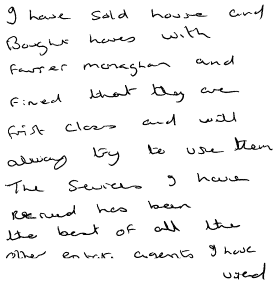 I have sold house and
Bought hores with
Farrer monaghan and
Fined that they are
frist class and will
always try to use them
The Sevices I have
Recived has been
the best of all the
other agents I have
used